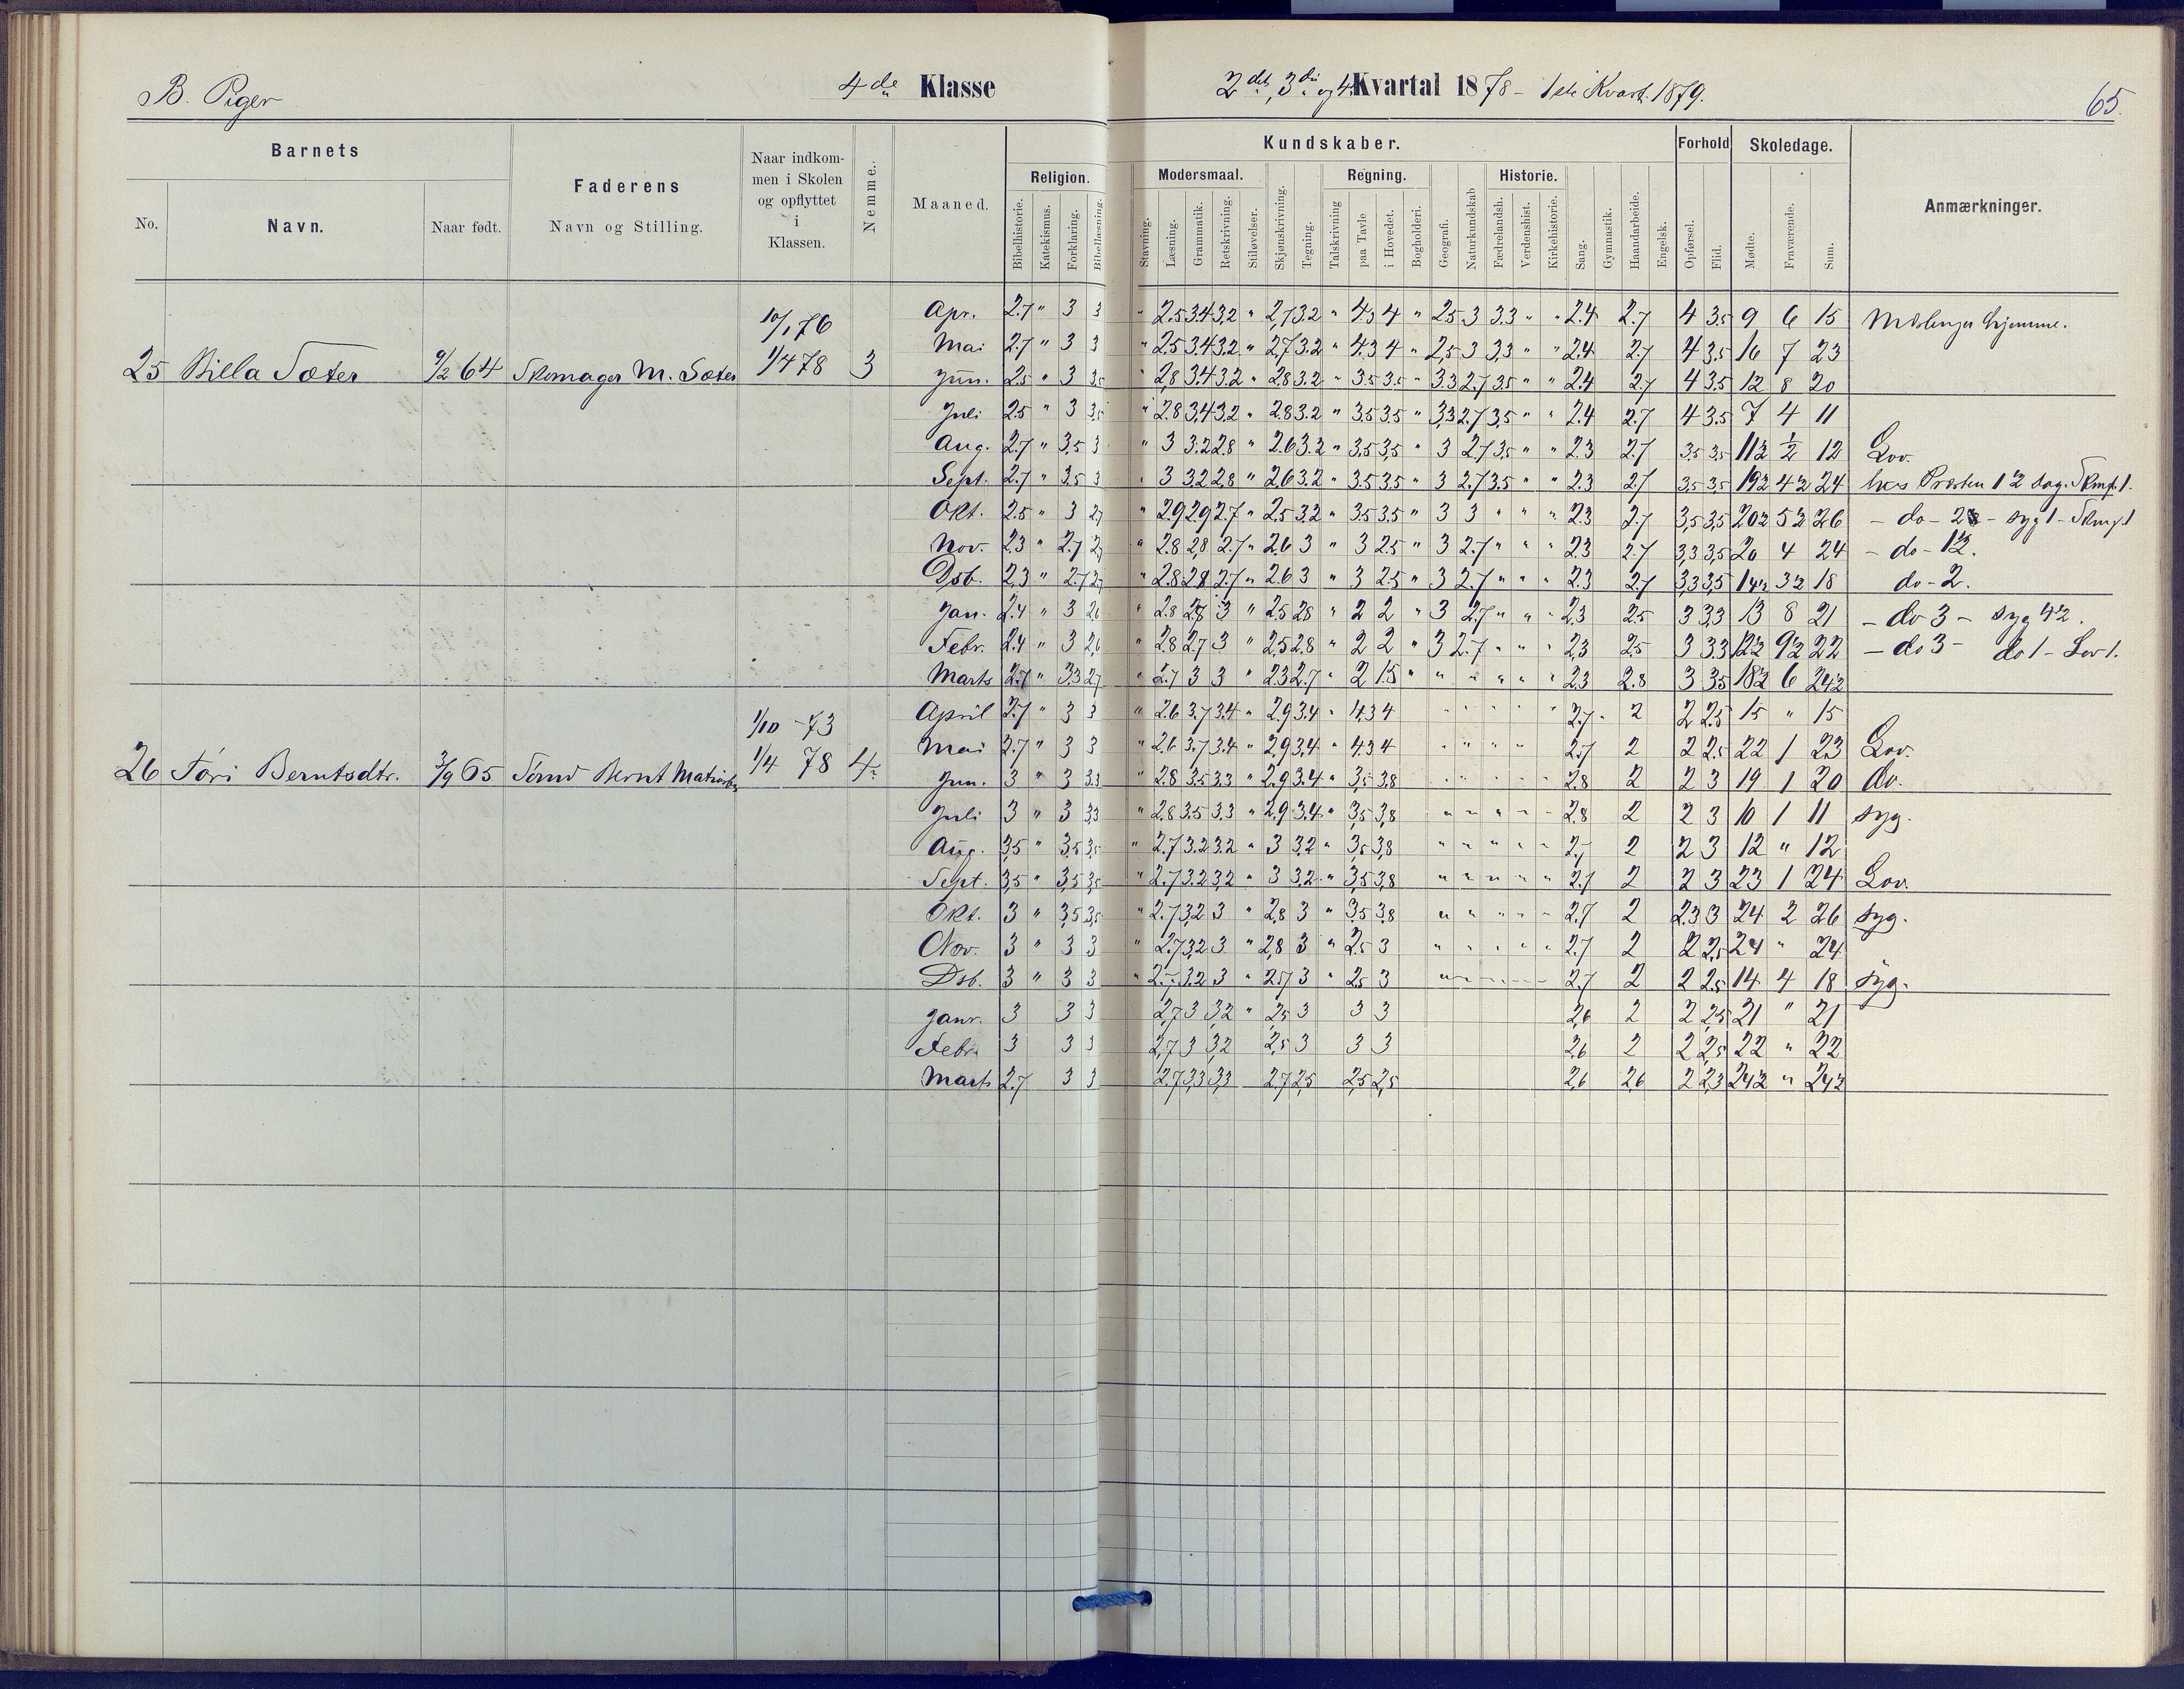 B. Piger 4de Klasse 2det, 3die og 4 Kvartal 1878 - 1ste Kvart. 1879. 65.
Barnets
No. Navn. Naar født.
Faderens
Navn og Stilling.
Naar indkom-
men i Skolen
og opflyttet
i
Klassen.
Nemme.
Maaned.
Kundskaber.
Religion.
Bibelhistorie. Katekismus. Forklaring. Bibellæsning.
Modersmaal.
Stavning. Læsning. Grammatik. Retskrivning. Stiløvelser. Skjønskrivning. Tegning.
Regning.
Talskrivning paa Tavle i Hovedet. Bogholderi. Geografi. Naturkundskab
Historie.
Fædrelandsh. Verdenshist. Kirkehistorie. Sang. Gymnastik. Haandarbeide. Engelsk.
Forhold
Opførsel. Flid.
Skoledage.
Mødte. Fraværende. Sum.
Anmærkninger.
25 Billa Sæter 9/2 64 Skomager M. Sæter 10/1 76 1/4 78 3
Apr. 2.7 " 3 3 " 2.5 3.4 3.2 " 2.7 3.2 " 4.3 4 " 2.5 3 3.3 " " 2.4 2.7 4 3.5 9 6 15 Mæslinger hjemme.
Mai 2.7 " 3 3 " 2.5 3.4 3.2 " 2.7 3.2 " 4.3 4 " 2.5 3 3.3 " " 2.4 2.7 4 3.5 16 7 23
Jun. 2.5 " 3 3.5 " 2.8 3.4 3.2 " 2.8 3.2 " 3.5 3.5 " 3.3 2.7 3.5 " " 2.4 2.7 4 3.5 12 8 20
Juli 2.5 " 3 3.5 " 2.8 3.4 3.2 " 2.8 3.2 " 3.5 3.5 " 3.3 2.7 3.5 " " 2.4 2.7 4 3.5 7 4 11
Aug. 2.7 " 3.5 3 " 3 3.2 2.8 " 2.6 3.2 " 3.5 3.5 " 3 2.7 3.5 " " 2.3 2.7 3.5 3.5 11½ ½ 12 Lov.
Sept. 2.7 " 3.5 3 " 3 3.2 2.8 " 2.6 3.2 " 3.5 3.5 " 3 2.7 3.5 " " 2.3 2.7 3.5 3.5 19½ 4½ 24 hos Præsten 1½ dag. Skmf. 1.
Okt. 2.5 " 3 2.7 " 2.9 2.9 2.7 " 2.5 3.2 " 3.5 3.5 " 3 3 " " " 2.3 2.7 3.5 3.5 20½ 5½ 26 - do - 2½ - syg 1 - Skmf. 1
Nov. 2.3 " 2.7 2.7 " 2.8 2.8 2.7 " 2.6 3 " 3 2.5 " 3 2.7 " " " 2.3 2.7 3.3 3.5 20 4 24 - do - 1½.
Dsb. 2.3 " 2.7 2.7 " 2.8 2.8 2.7 " 2.6 3 " 3 2.5 " 3 2.7 " " " 2.3 2.7 3.3 3.5 14½ 3½ 18 do - 2.
Jan. 2.4 " 3 2.6 " 2.8 2.8 3 " 2.5 2.8 " 2 2 " 3 2.7 " " " 2.3 2.5 3 3.3 13 8 21 - do 3 - syg 4½.
Febr. 2.4 " 3 2.6 " 2.8 2.7 3 " 2.5 2.8 " 2 2 " 3 2.7 " " " 2.3 2.5 3 3.3 12½ 9½ 22 - do 3 - do 1 - Lov 1.
Marts 2.7 " 3.3 2.7 " 2.7 3 3 " 2.3 2.7 " 2 1.5 " " " " " " 2.3 2.8 3 3.5 18½ 6 24½
26 Tori Berntsdtr. 3/9 65 Sømd Bernt 1/10 - 73 1/4 78 4
April 2.7 " 3 3 " 2.6 3.7 3.4 " 2.9 3.4 " 4.3 4 " " " " " 2.7 2 2 2.5 15 " 15
Mai 2.7 " 3 3 " 2.6 3.7 3.4 " 2.9 3.4 " 4.3 4 " " " " 2.7 2 2 2.5 22 1 23 Lov.
Jun. 3 " 3 3.3 " 2.8 3.5 3.3 " 2.9 3.4 " 3.5 3.8 " " " " " 2.8 2 2 3 19 1 20 do.
Juli 3 " 3 3.3 " 2.8 3.5 3.3 " 2.9 3.4 " 3.5 3.8 " " " " " 2.8 2 2 3 10 1 11 syg.
Aug. 3.5 " 3.5 3.5 " 2.7 3.2 3.2 " 3 3.2 " 3.5 3.8 " " " " " 2.7 2 2 3 12 " 12
Sept. 3.5 " 3.5 3.5 " 2.7 3.2 3.2 " 3 3.2 " 3.5 3.8 " " " " " 2.7 2 2 3 23 1 24 Lov.
Okt. 3 " 3.5 3.5 " 2.7 3.2 3 " 2.8 3 " 3.5 3.8 " " " " " 2.7 2 2.3 3 24 2 26 syg.
Nov. 3 " 3 3 " 2.7 3.2 3 " 2.8 3 " 2.5 3 " " " " " 2.7 2 2 2.5 24 " 24
Dsb. 3 " 3 3 " 2.7 3.2 3 " 2.7 3 " 2.5 3 " " " " " 2.7 2 2 2.5 14 4 18 syg.
Janr. 3 3 3 2.7 3 3.2 " 2.5 3 3 3 2.6 2 2 2.5 21 " 21
Febr. 3 3 3 2.7 3 3.2 2.5 3 3 3 2.6 2 2 2.5 22 " 22
Marts 2.7 3 3 2.7 3.3 3.3 2.7 2.5 2.5 2.5 2.6 2.6 2 2.3 24½ " 24½